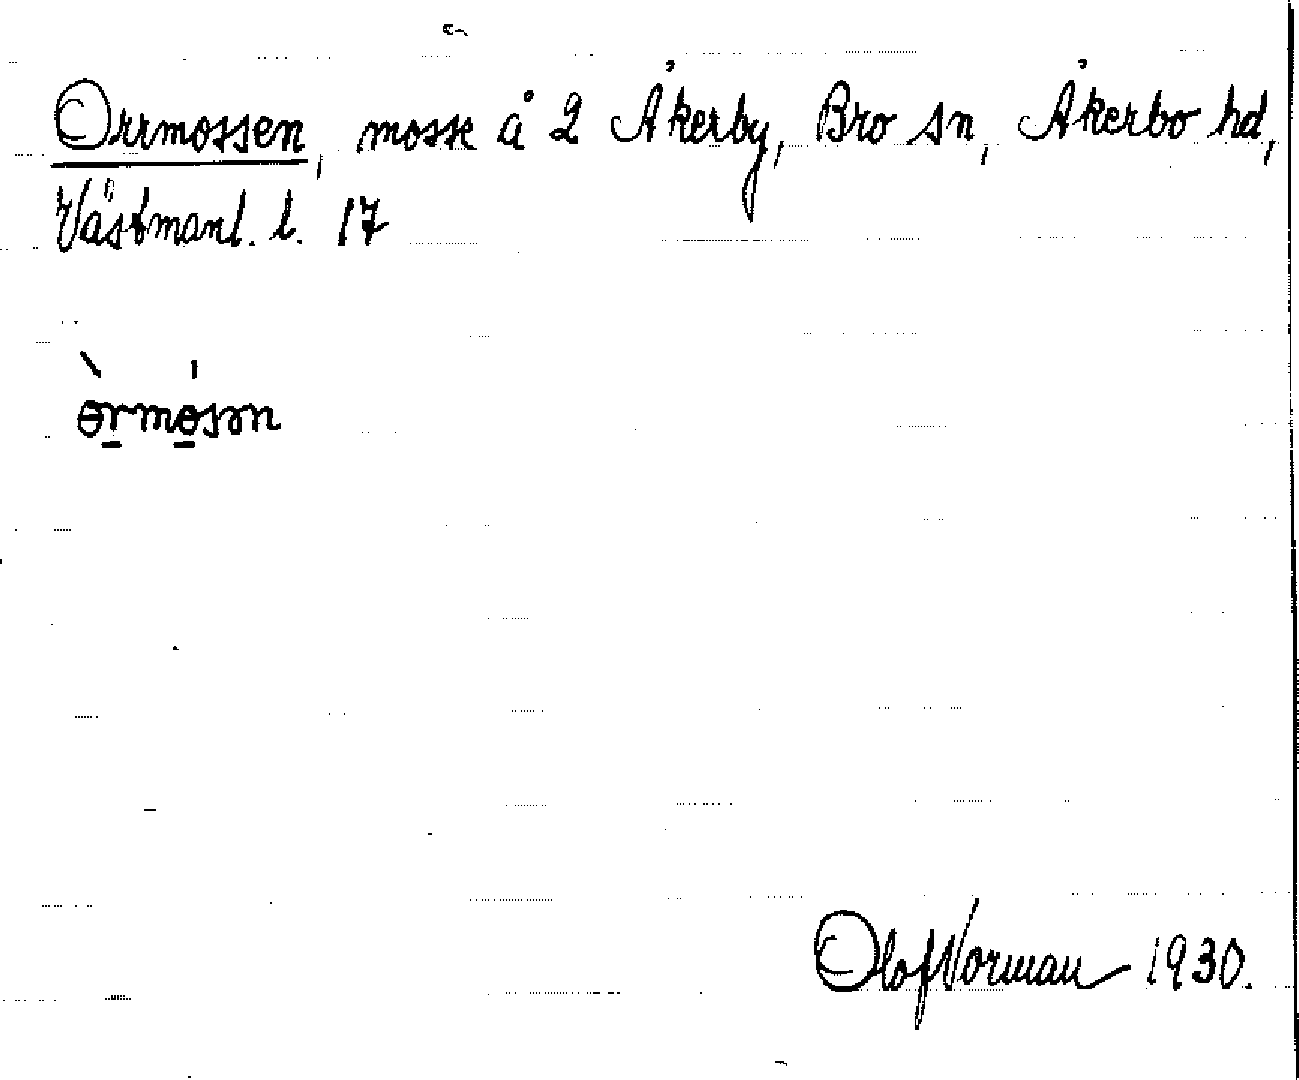 Orrmossen, mosse å 2 Åkerby, Bro sn, Åkerbo hd,
Västmanl. l. 17
ɵrmɵsən
Olof Norman 1930.